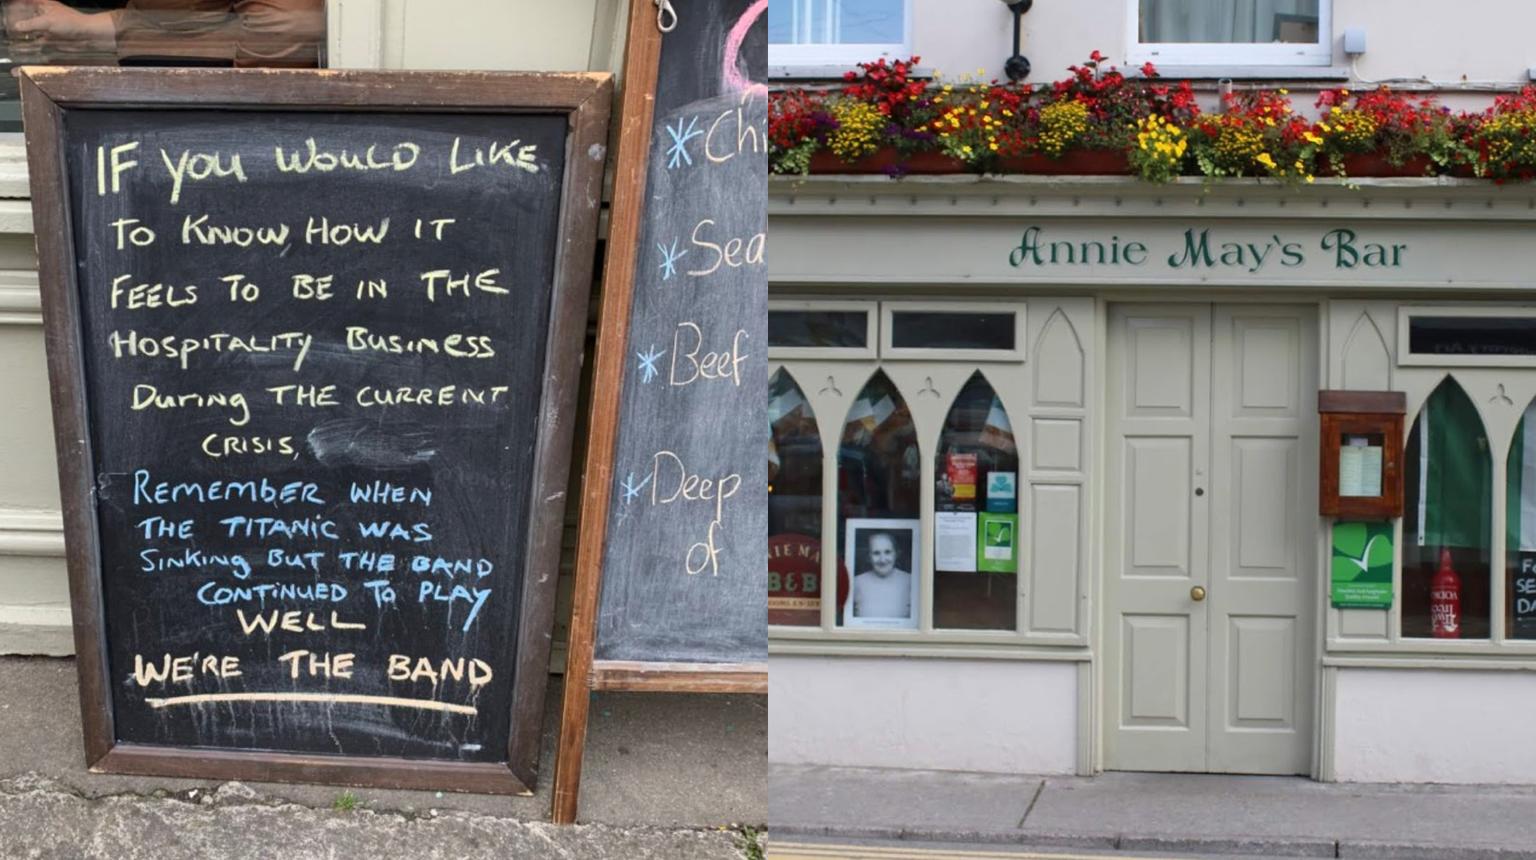 IF YOU WOULD LIKE
TO KNOW HOW IT
FEELS TO BE IN THE
HOSPITALITY BUSINESS
DURING THE CURRENT
CRISIS,
REMEMBER WHEN
THE TITANIC WAS
SINKING BUT THE BAND
CONTINUED TO PLAY
WELL
WE'RE THE BAND
* Chi
* Sea
* Beef
* Deep
of
Annie May's Bar
NIE MA
B&B